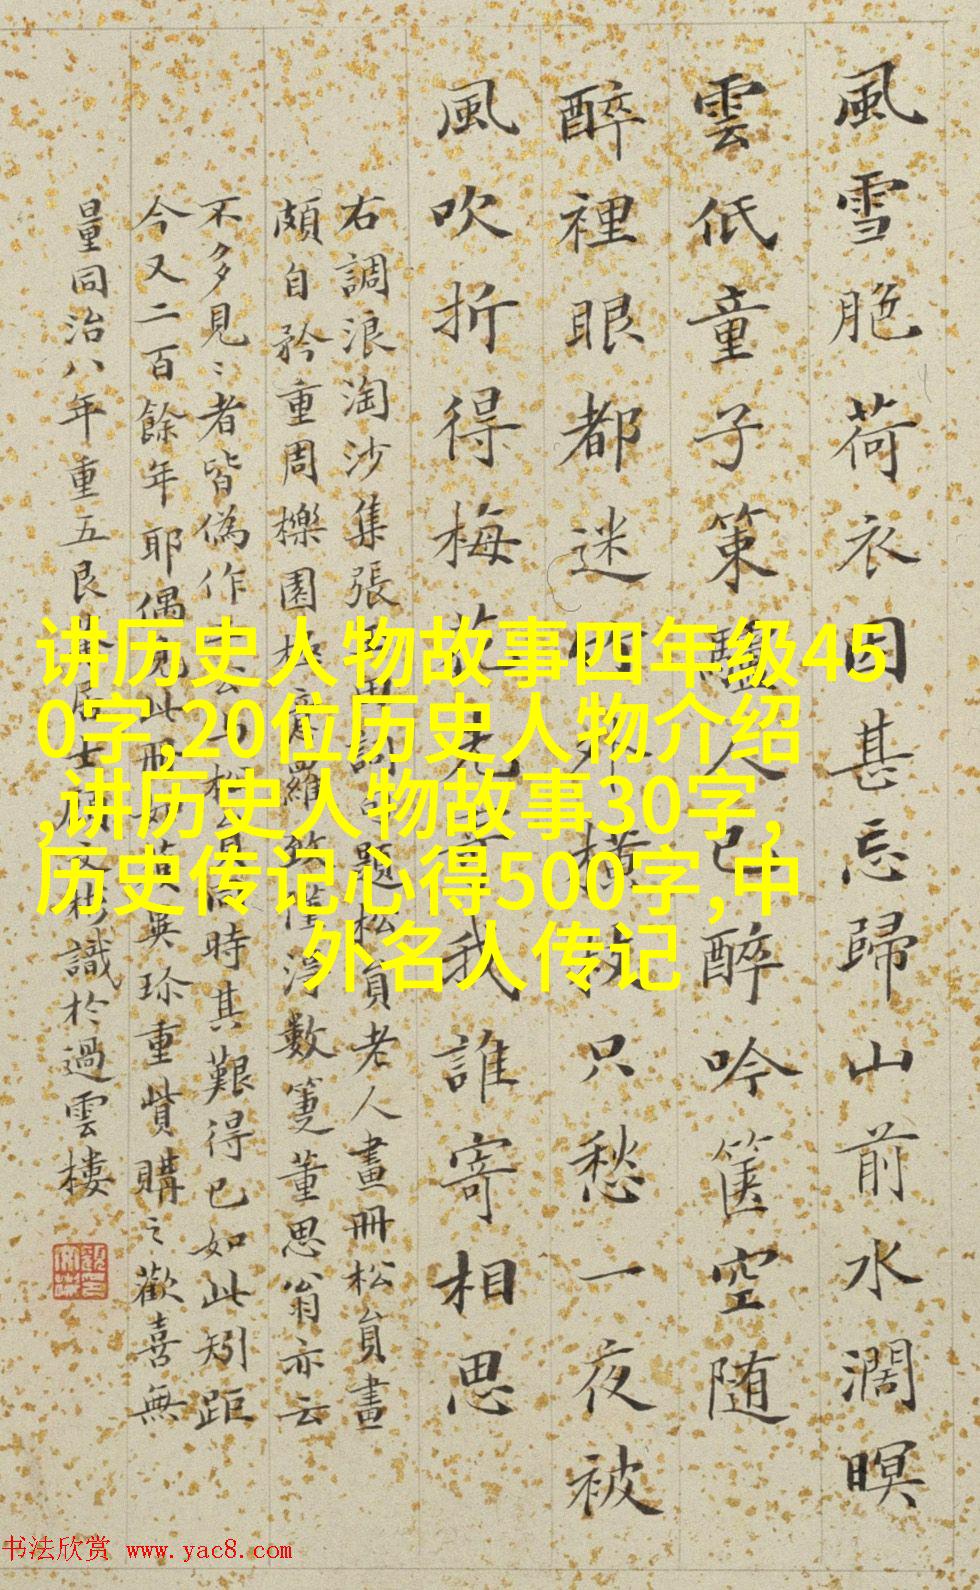 風雪脃荷衣因甚忘歸山前水濶暝
雲低童子策驢人已醉吟篋空随
醉裡眼都迷 橫 只愁一夜被
風吹折得梅花 我誰寄相思
右調浪淘沙集張 題松員老人畫冊松員畫
頗自矜重周櫟園 數箋董思翁亦云
不多見〻者皆偽作 時其艱得已如此矧距
今又二百餘年耶偶見此冊 珍重貲購之歡喜無
量同治八年重五艮 識於過雲樓
讲历史人物故事四年级45
0字,20位历史人物介绍
,讲历史人物故事30字,
历史传记心得500字,中
外名人传记
书法欣赏 www.yac8.com